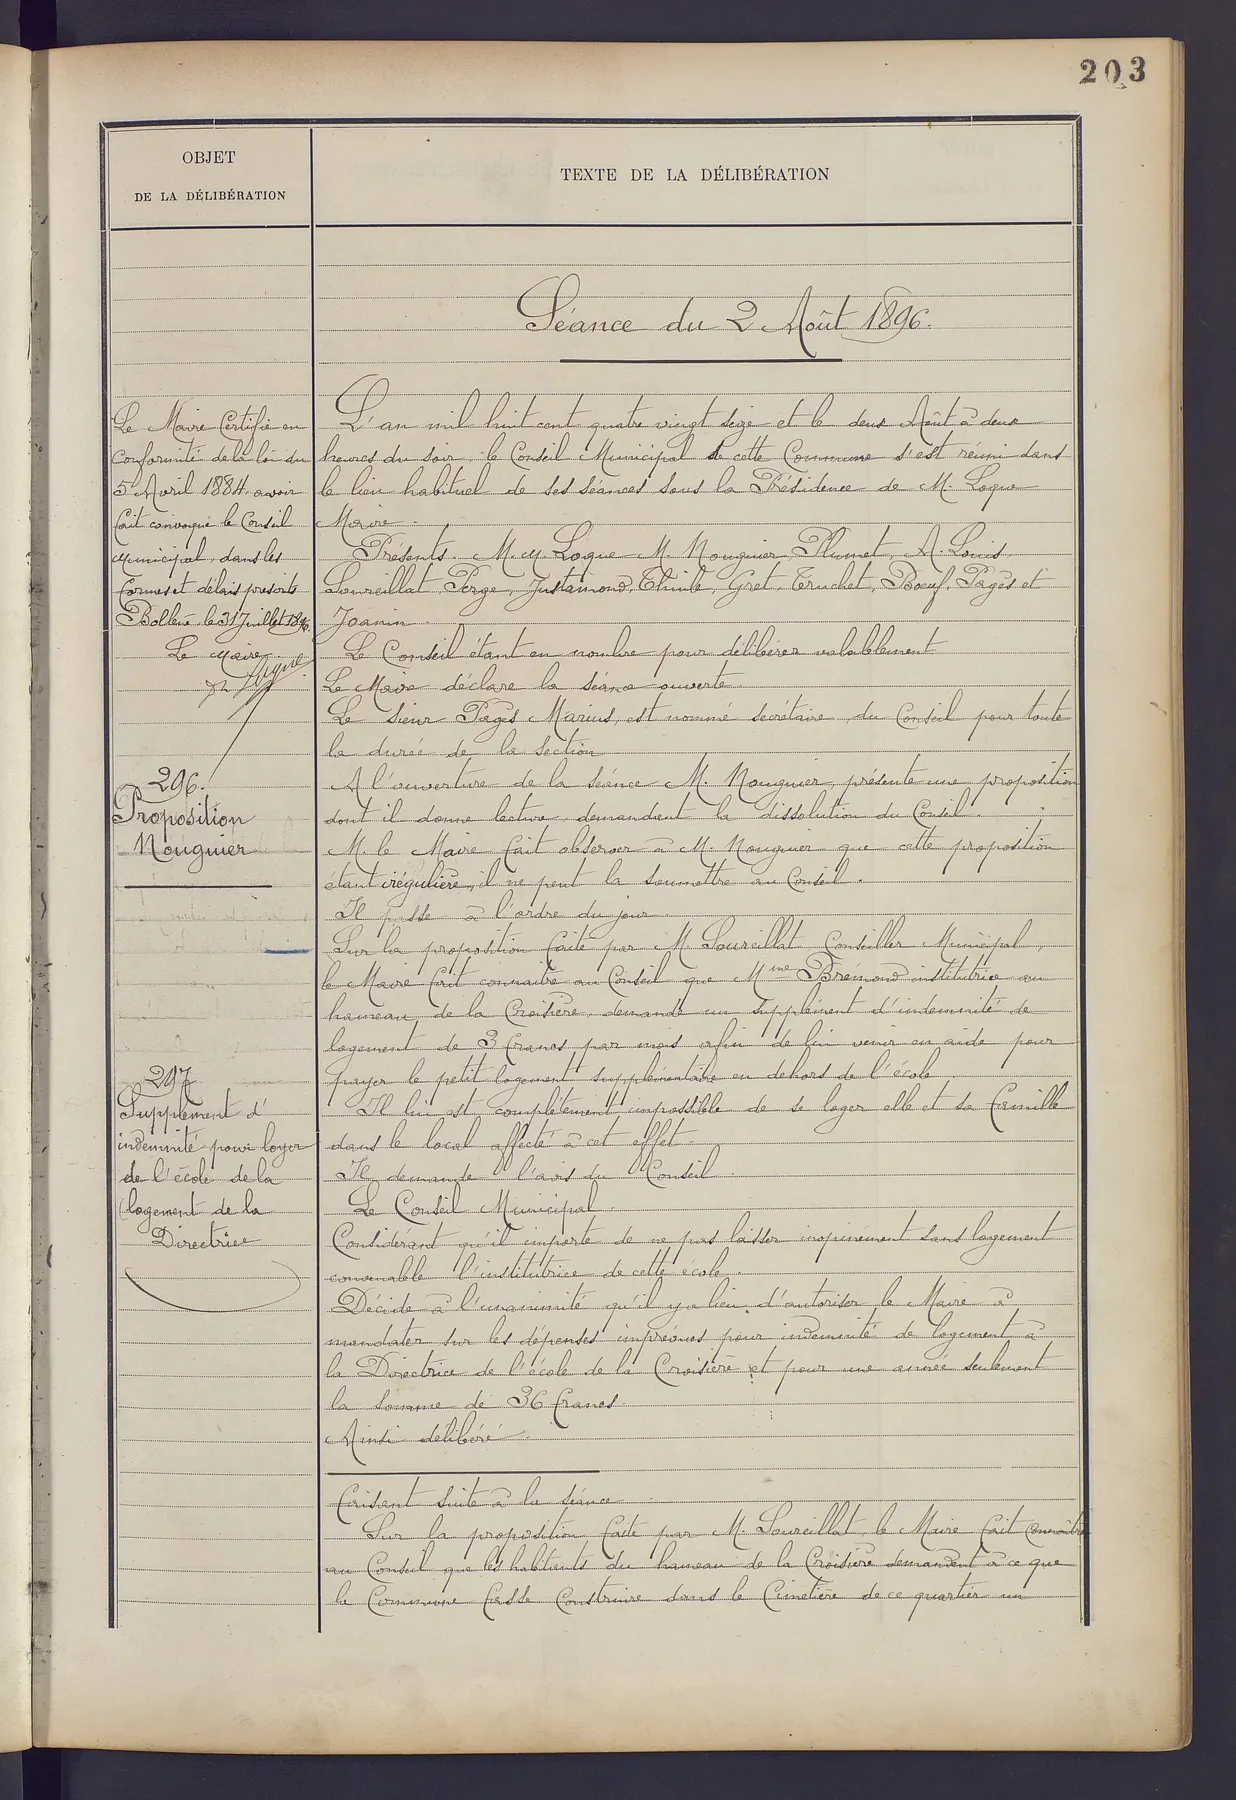 203
OBJET
DE LA DÉLIBÉRATION
TEXTE DE LA DÉLIBÉRATION
Séance du 2 Août 1896.
Le Maire Certifie en
conformité de la loi du
5 Avril 1884, avoir
fait convoqué le Conseil
Municipal, dans les
formes et délais prescrits
Bollène, le 31 Juillet 1896.
Le Maire
L'an mil huit cent quatre vingt seize et le deux Août à deux
heures du soir, le Conseil Municipal de cette Commune s'est réuni dans
le lieu habituel de ses séances sous la Présidence de M. Loque
Maire.
Présents. M. M. Loque M. Nouguier, Plumet, A. Louis,
Soureillat, Perge, Justamond, Thuile, Gret, Truchet, Boeuf, Pagès et
Joanin.
Le Conseil étant en nombre pour délibérer valablement
Le Maire déclare la séance ouverte.
Le sieur Pagès Marius, est nommé secrétaire du Conseil pour toute
la durée de la section
296.
Proposition
Nouguier
A l'ouverture de la séance M. Nouguier, présente une proposition
dont il donne lecture, demandant la dissolution du Conseil.
M. le Maire fait observer à M. Nouguier que cette proposition
étant irégulière, il ne peut la soumettre au Conseil.
Il passe à l'ordre du jour.
297
Supplément d'
indemnité pour loyer
de l'école de la
logement de la
Directrice
Sur la proposition faite par M. Soureillat, Conseiller Municipal,
le Maire fait connaitre au Conseil que Mme Brémond institutrice au
hameau de la Croisière, demande un supplément d'indemnité de
logement de 3 francs par mois afin de lui venir en aide pour
payer le petit logement supplémentaire en dehors de l'école.
Il lui est complètement impossible de se loger elle et sa famille
dans le local affecté à cet effet.
Il demande l'avis du Conseil.
Le Conseil Municipal.
Considérant qu'il importe de ne pas laisser inopinément sans logement
convenable l'institutrice de cette école.
Décide à l'unanimité qu'il y a lieu, d'autoriser le Maire à
mandater sur les dépenses imprévues pour indemnité de logement à
la Directrice de l'école de la Croisière et pour une année seulement
la somme de 36 francs.
Ainsi délibéré.
Faisant suite à la séance.
Sur la proposition faite par M. Soureillat, le Maire fait connaitre
au Conseil que les habitants du hameau de la Croisière demandent à ce que
la Commune fasse construire dans le Cimetière de ce quartier un